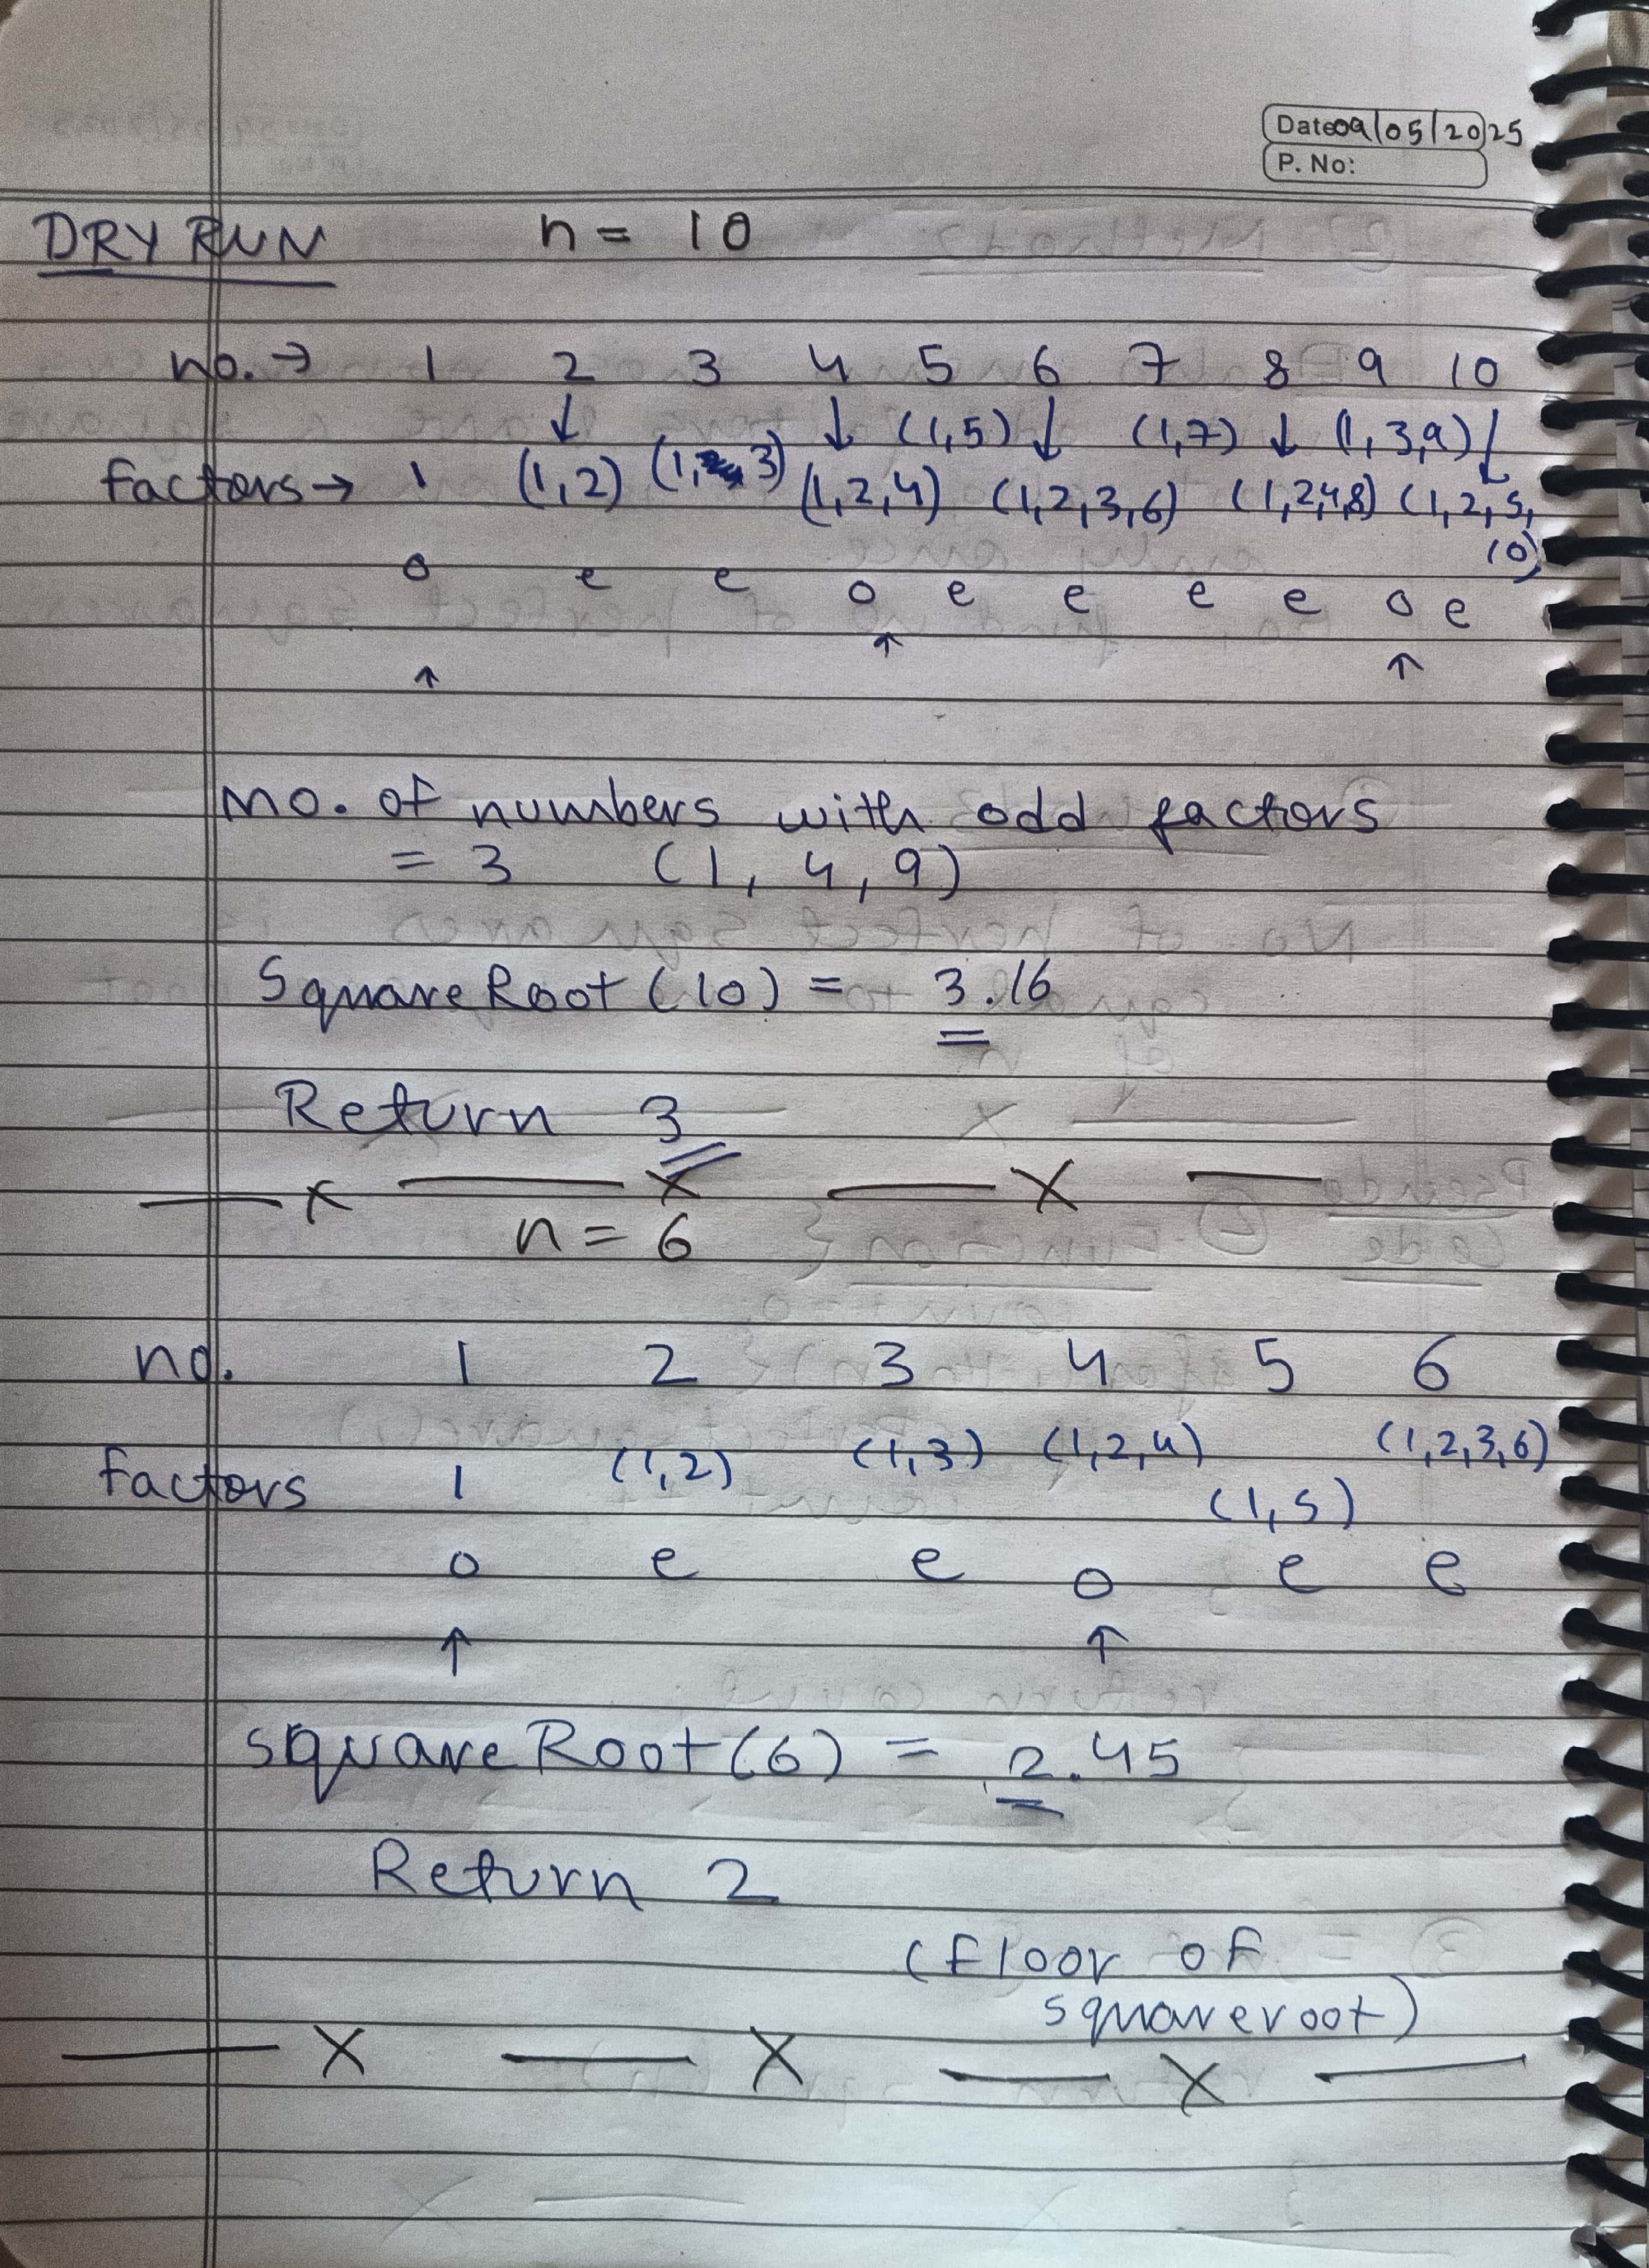 Date 09/05/2025
P. No:
DRY RUN n = 10
no. → 1 2 3 4 5 6 7 8 9 10
↓ ↓ (1,5) ↓ (1,7) ↓ (1,3,9) ↓
factors → 1 (1,2) (1, 3) (1,2,4) (1,2,3,6) (1,2,4,8) (1,2,5,
10)
o e e o e e e e o e
↑ ↑ ↑
no. of numbers with odd factors
= 3 (1, 4, 9)
SquareRoot(10) = 3.16
Return 3
— x — x — x —
n = 6
no. 1 2 3 4 5 6
factors 1 (1,2) (1,3) (1,2,4) (1,5) (1,2,3,6)
o e e o e e
↑ ↑
squareRoot(6) = 2.45
Return 2
(floor of
squareroot)
— x — x — x —